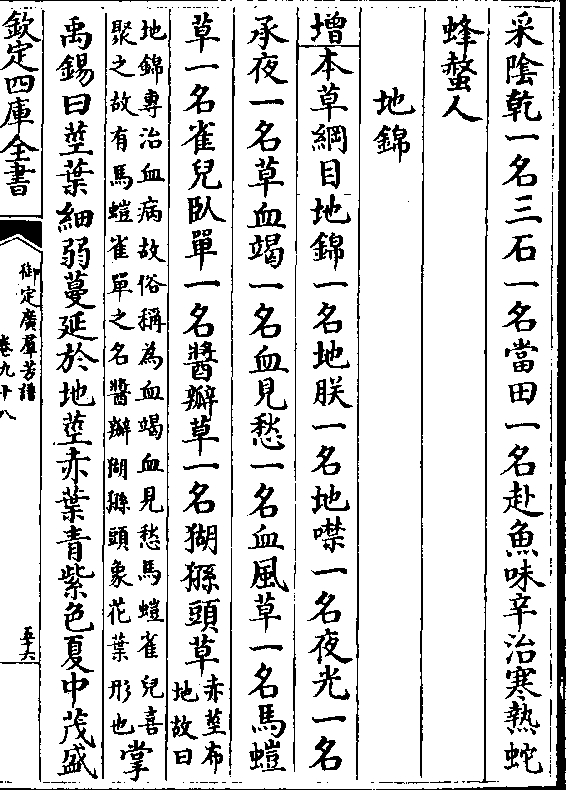 采陰乾一名三石一名當田一名赴魚味辛治寒熱蛇
蜂螫人
地錦
增本草綱目地錦一名地朕一名地噤一名夜光一名
承夜一名草血竭一名血見愁一名血風草一名馬螘
草一名雀兒臥單一名醬瓣草一名猢猻頭草
赤莖布
地故曰
地錦專治血病故俗稱為血竭血見愁馬螘雀兒喜
聚之故有馬螘雀單之名醬瓣猢猻頭象花葉形也
掌
禹錫曰莖葉細弱蔓延於地莖赤葉青紫色夏中茂盛
欽定四庫全書
御定廣羣芳譜
卷九十八
五十六